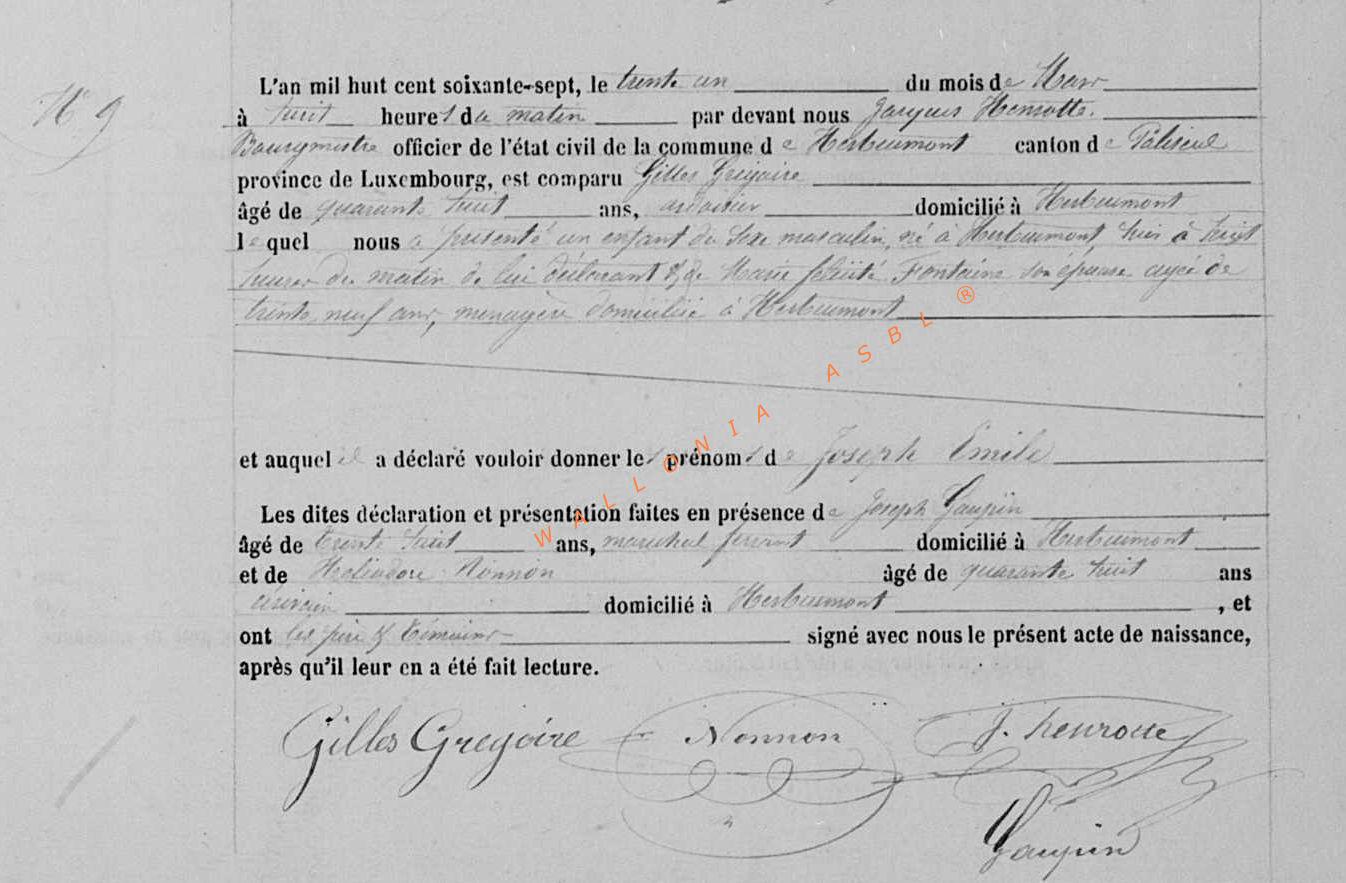 N° 9
L'an mil huit cent soixante-sept, le trente un du mois de Mars
à huit heures du matin par devant nous Jacques Henrotte.
Bourgmestre officier de l'état civil de la commune de Herbeumont canton de Paliseul
province de Luxembourg, est comparu Gilles Grégoire
âgé de quarante huit ans, ardoisier domicilié à Herbeumont
lequel nous a présenté un enfant du sexe masculin, né à Herbeumont, hier à huit
heures du matin de lui déclarant & de Marie félicité Fontaine son épouse agée de
trente neuf ans, ménagère domiciliée à Herbeumont
et auquel il a déclaré vouloir donner les prénoms de Joseph Emile
Les dites déclaration et présentation faites en présence de Joseph Gaupin
âgé de trente huit ans, maréchal ferrant domicilié à Herbeumont
et de Héliodore Nonnon âgé de quarante huit ans
domicilié à Herbeumont , et
ont les père & témoins signé avec nous le présent acte de naissance,
après qu'il leur en a été fait lecture.
Gilles Gregoire Nonnon J. henrotte
Gaupin
WALLONIA ASBL ®